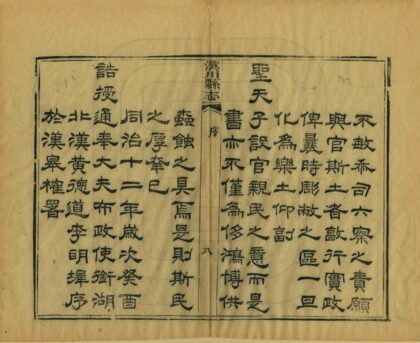 不敏忝司六察之責願
與官斯土者敦行實政
俾曩時彫敝之區一旦
化為樂土仰副
聖天子設官親民之意而是
書亦不僅為侈鴻博供
漢川縣志
序
八
蟲蝕之具焉是則斯民
之厚幸已
同治十二年歲次癸酉
誥授通奉大夫布政使銜湖
北漢黃德道李明墀序
於漢皋榷署